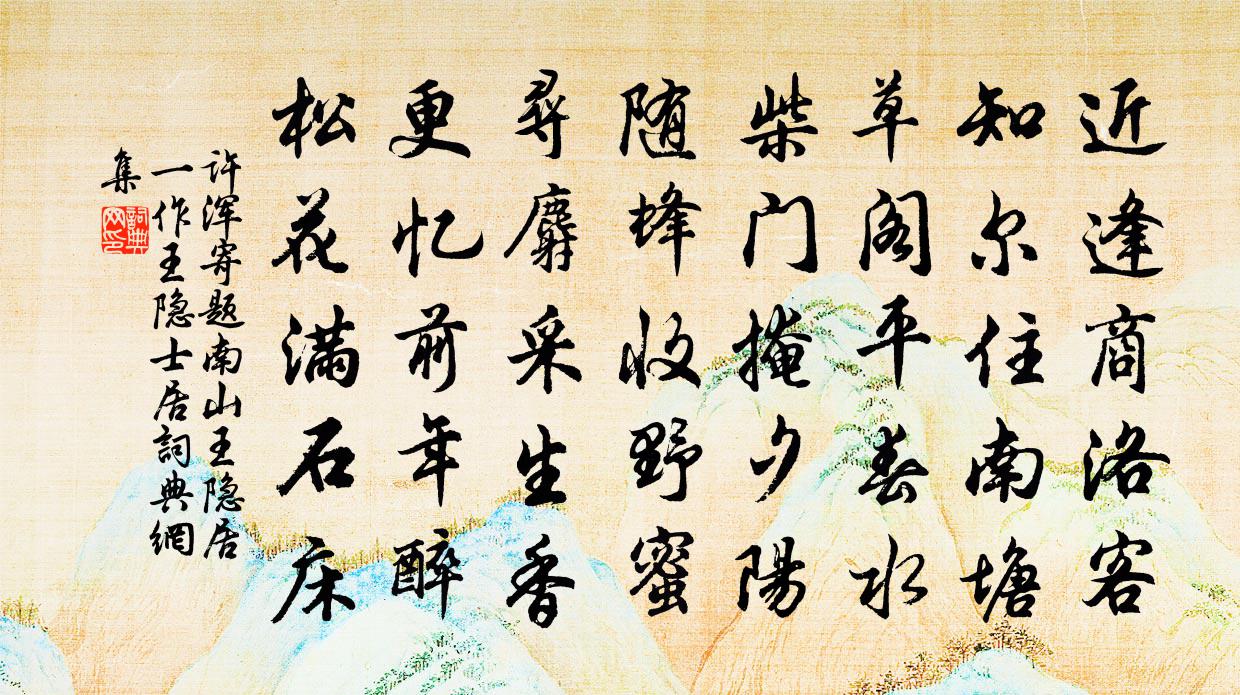 近逢商洛客
知尔住南塘
草阁平春水
柴门掩夕陽
随蜂收野蜜
尋麝采生香
更忆前年醉
松花满石床
许浑寄题南山王隐居
一作王隐士居詞典網
集
詞典
网印